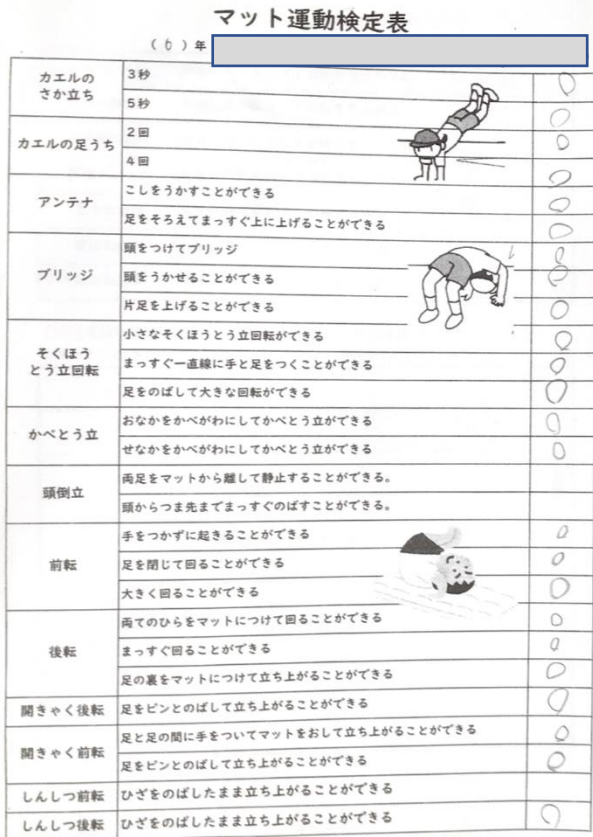 マット運動検定表
(6)年
カエルのさか立ち
3秒 ○
5秒 ○
カエルの足うち
2回 ○
4回 ○
アンテナ
こしをうかすことができる ○
足をそろえてまっすぐ上に上げることができる ○
ブリッジ
頭をつけてブリッジ ○
頭をうかせることができる ○
片足を上げることができる ○
そくほうとう立回転
小さなそくほうとう立回転ができる ○
まっすぐ一直線に手と足をつくことができる ○
足をのばして大きな回転ができる ○
かべとう立
おなかをかべがわにしてかべとう立ができる ○
せなかをかべがわにしてかべとう立ができる ○
頭倒立
両足をマットから離して静止することができる。
頭からつま先までまっすぐのばすことができる。
前転
手をつかずに起きることができる ○
足を閉じて回ることができる ○
大きく回ることができる ○
後転
両てのひらをマットにつけて回ることができる ○
まっすぐ回ることができる ○
足の裏をマットにつけて立ち上がることができる ○
開きゃく後転
足をピンとのばして立ち上がることができる ○
開きゃく前転
足と足の間に手をついてマットをおして立ち上がることができる ○
足をピンとのばして立ち上がることができる ○
しんしつ前転
ひざをのばしたまま立ち上がることができる
しんしつ後転
ひざをのばしたまま立ち上がることができる ○